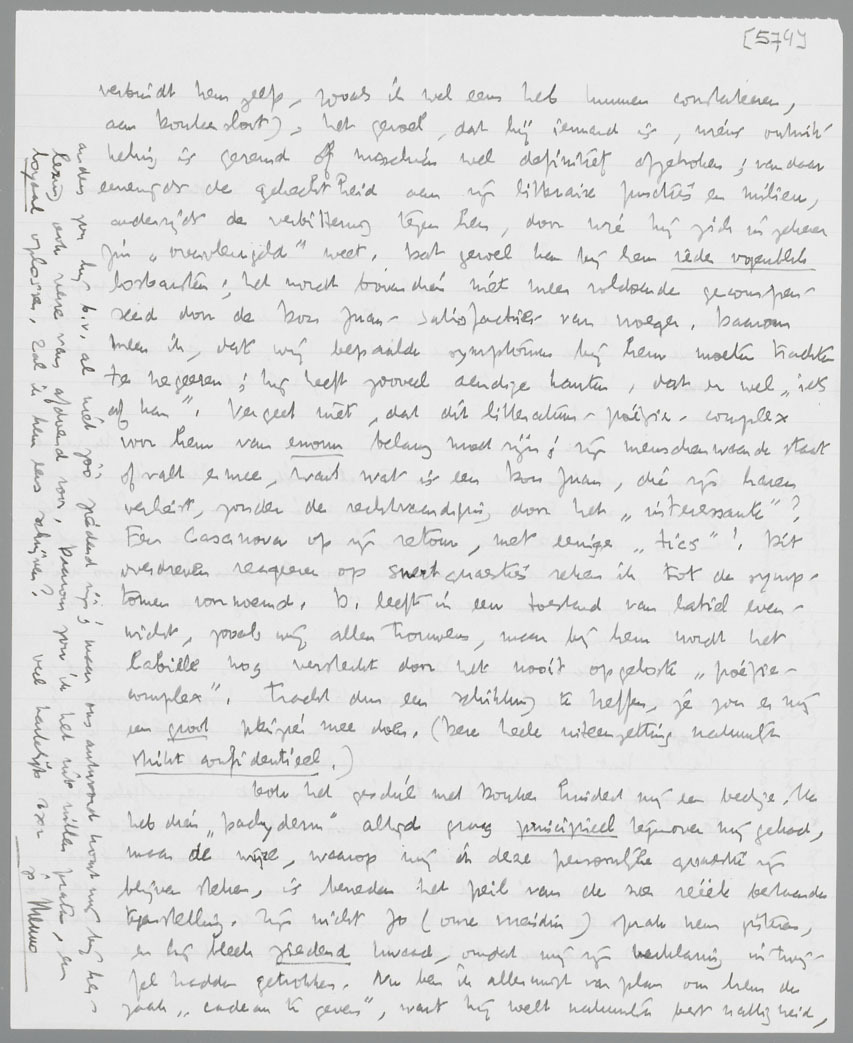 [574]
verbindt hem zelf, zooals ik wel eens heb kunnen constateeren,
aan Donkersloot), het gevoel, dat hij iemand is, wiens ontwik-
keling is geremd of misschien wel definitief afgebroken; vandaar
eenerzijds de gehechtheid aan zijn litteraire functies en milieu,
anderzijds de verbittering tegen hen, door wie hij zich in geheven
zin „overvleugeld” weet. Dat gevoel kan bij hem ieder oogenblik
losbarsten; het wordt bovendien niet meer voldoende gecompen-
seerd door de Don Juan-satisfacties van vroeger. Daarom
meen ik, dat wij bepaalde symptomen bij hem moeten trachten
te negeeren; hij heeft zooveel aardige kanten, dat er wel „iets
af kan”. Vergeet niet, dat dit litteratuur-poëzie-complex
voor hem van enorm belang moet zijn; zijn menschenwaarde staat
of valt ermee, want wat is een Don Juan, die zijn haren
verliest, zonder de rechtvaardiging door het „interessante”?
Een Casanova op zijn retour, met eenige „tics”! Dit
overdreven reageeren op quaesties reken ik tot de symp-
tomen voornoemd. D. leeft in een toestand van labiel even-
wicht, zooals wij allen trouwens, maar bij hem wordt het
labiele nog versterkt door het nooit opgeloste „poëzie-
complex”. Tracht dus een schikking te treffen, je zou er mij
een groot plezier mee doen. (Deze heele uiteenzetting natuurlijk
strikt confidentieel.)
Ook het geschil met Donker hindert mij een beetje. Ik
heb dien „pachyderm” altijd graag principieel tegenover mij gehad,
maar de wijze, waarop wij in deze persoonlijke quaestie zijn
blijven steken, is beneden het peil van de zoo reëele bestaande
tegenstelling. Zijn nicht Jo (onze meisje) sprak hem gisteren,
en hij bleek ziedend kwaad, omdat wij zijn verklaring in twij-
fel hadden getrokken. Nu ben ik allerminst van plan om hem de
zaak „cadeau te geven”, want hij weet natuurlijk best
anders zou hij b.v. al niet zoo ziedend zijn; maar ons antwoord komt mij bij her-
lezing ook weer afdoend voor. Daarom zou ik het uit willen praten, en
loyaal oplossen. Zal ik hem eens schrijven? veel hartelijks van
je Menno